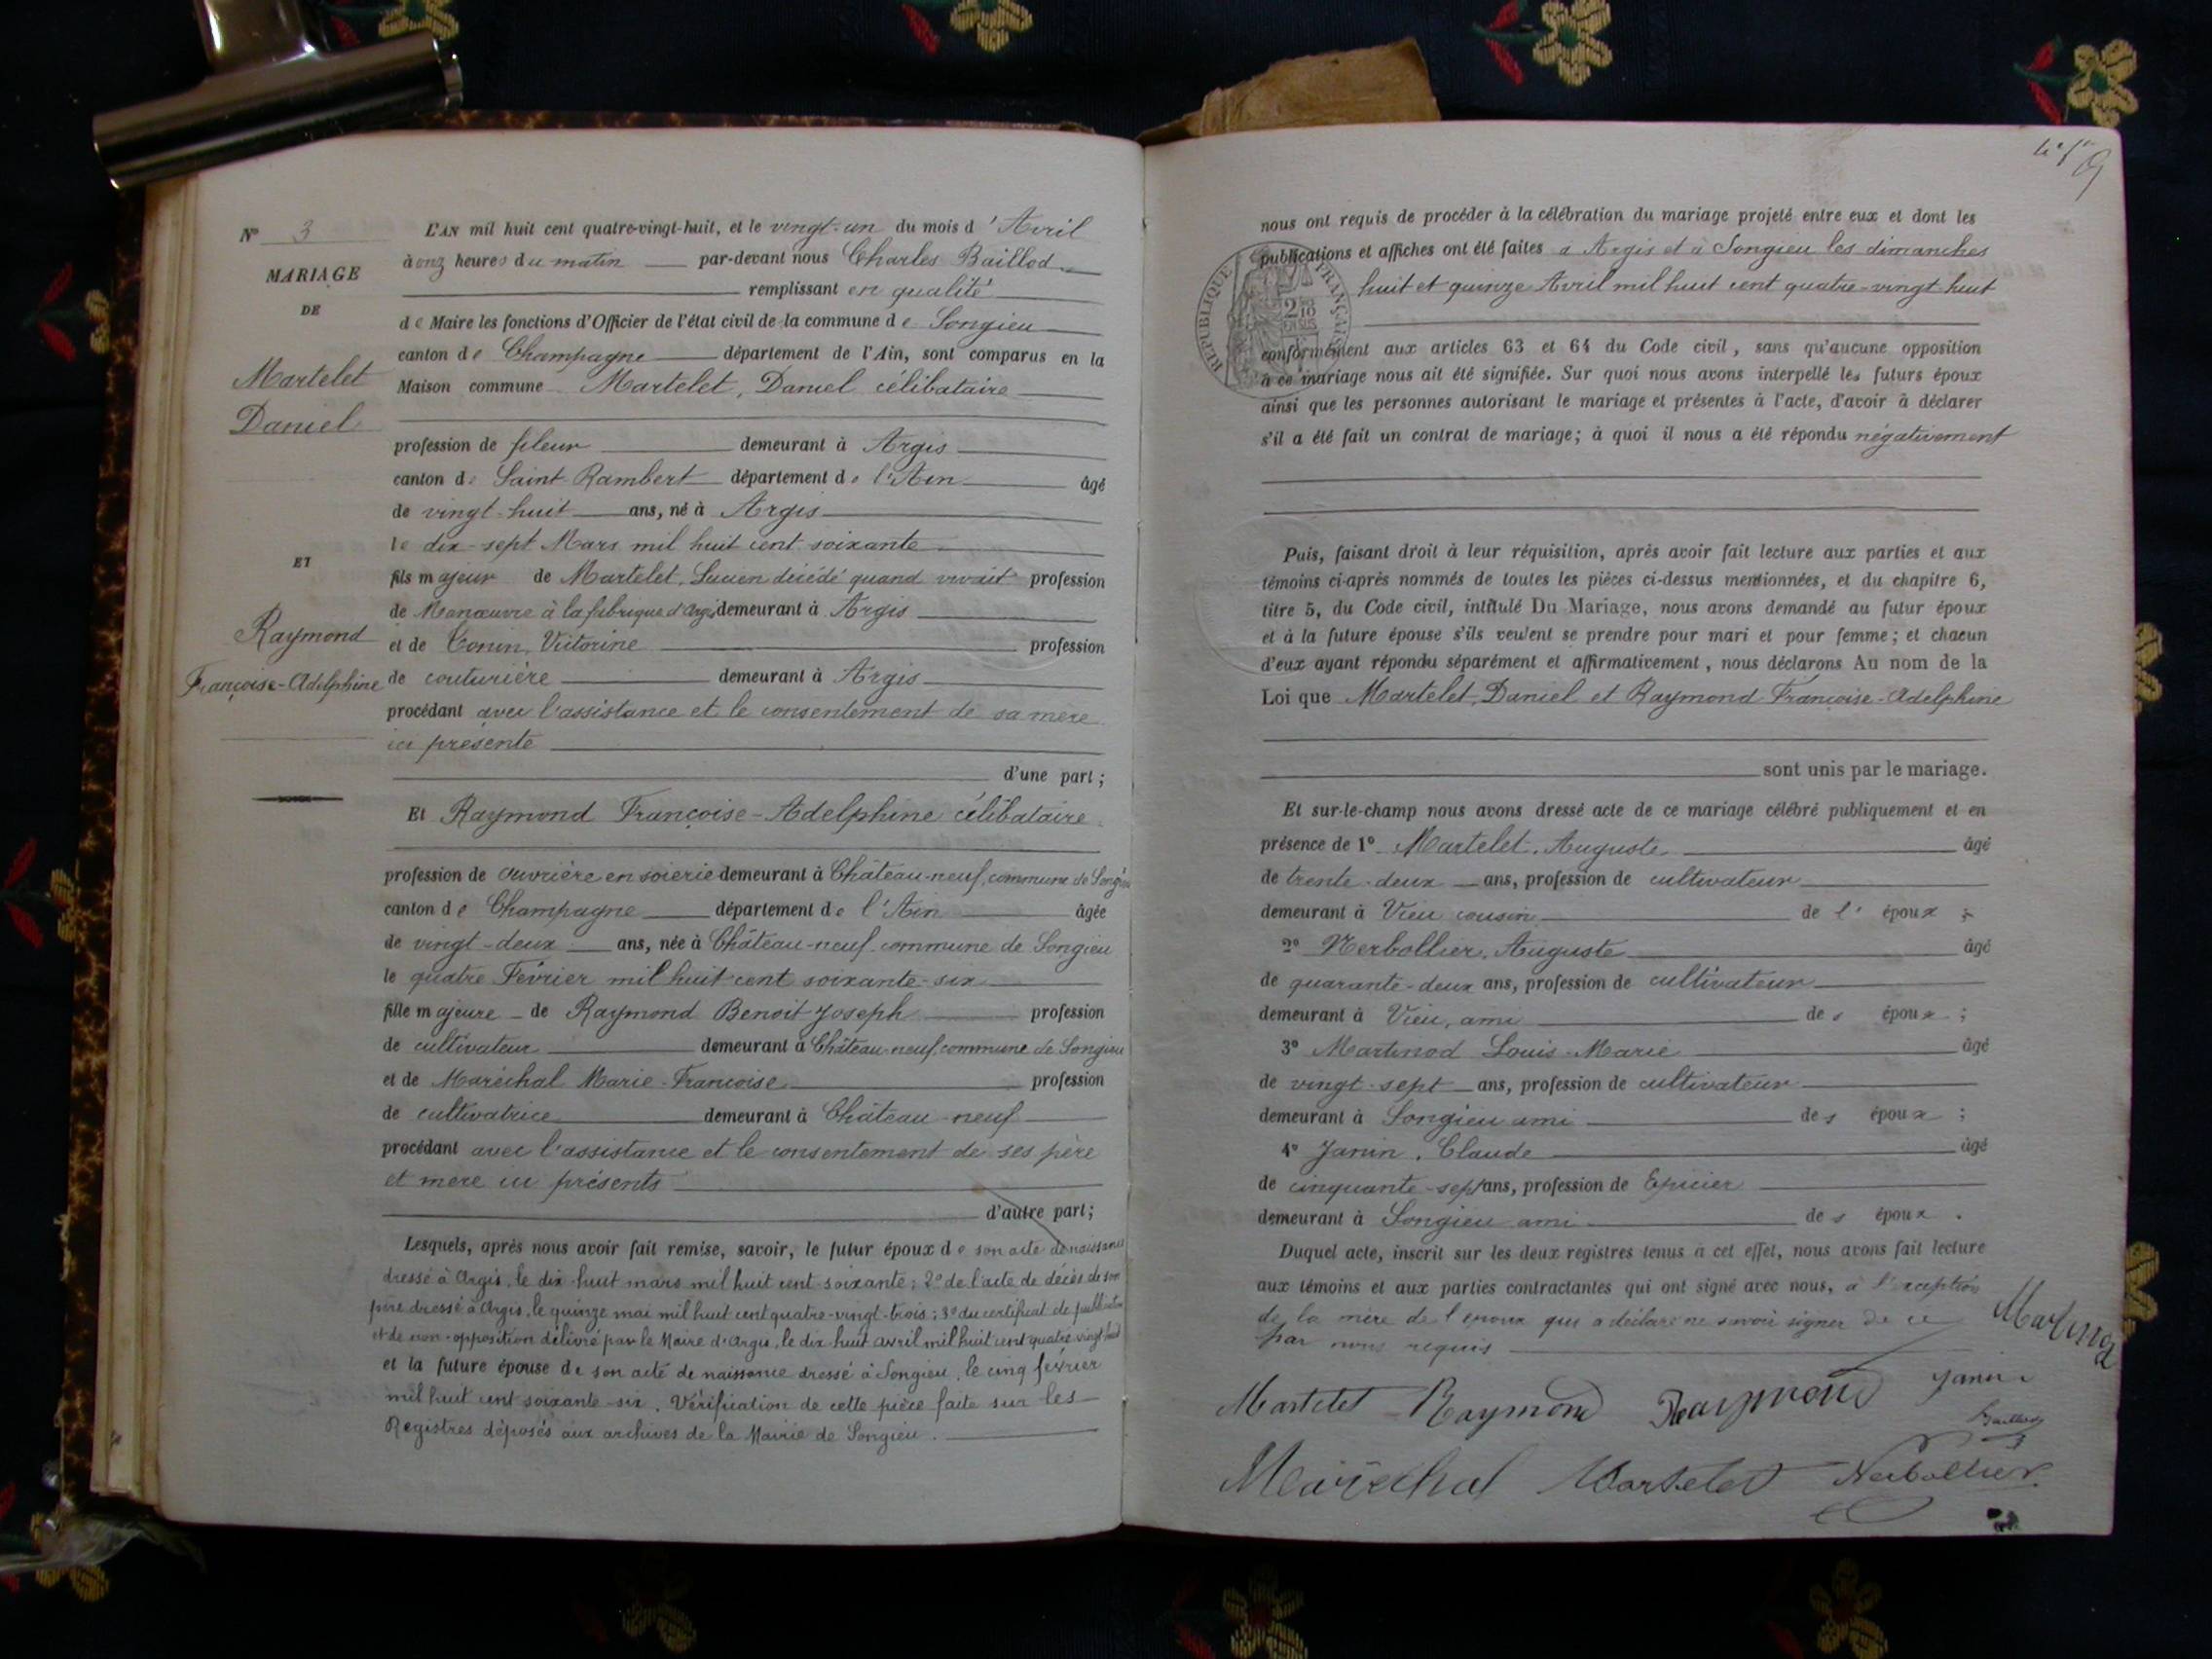 N° 3
MARIAGE
DE
Martelet
Daniel
ET
Raymond
Françoise-Adelphine
L'AN mil huit cent quatre-vingt-huit, et le vingt-un du mois d'Avril
à onz heures du matin par-devant nous Charles Baillod
remplissant en qualité
de Maire les fonctions d'Officier de l'état civil de la commune de Songieu
canton de Champagne département de l'Ain, sont comparus en la
Maison commune Martelet, Daniel célibataire
profession de fileur demeurant à Argis
canton de Saint-Rambert département de l'Ain âgé
de vingt-huit ans, né à Argis
le dix-sept Mars mil huit cent soixante
fils majeur de Martelet, Lucien décédé quand vivait profession
de Manœuvre à la fabrique d'Argis demeurant à Argis
et de Tonin, Victorine profession
de couturière demeurant à Argis
procédant avec l'assistance et le consentement de sa mère
ici présente
d'une part;
Et Raymond Françoise-Adelphine célibataire
profession de ouvrière en soierie demeurant à Château-neuf, commune de Songieu
canton de Champagne département de l'Ain âgée
de vingt-deux ans, née à Château-neuf commune de Songieu
le quatre Février mil huit cent soixante-six
fille majeure de Raymond Benoit Joseph profession
de cultivateur demeurant à Château-neuf, commune de Songieu
et de Maréchal Marie-Françoise profession
de cultivatrice demeurant à Château-neuf
procédant avec l'assistance et le consentement de ses père
et mère ici présents
d'autre part;
Lesquels, après nous avoir fait remise, savoir, le futur époux de son acte de naissance
dressé à Argis, le dix-huit mars mil huit cent soixante; 2° de l'acte de décès de son
père dressé à Argis, le quinze mai mil huit cent quatre-vingt-trois; 3° du certificat de publication
et de non-opposition délivré par le Maire d'Argis, le dix-huit avril mil huit cent quatre-vingt-huit
et la future épouse de son acte de naissance dressé à Songieu, le cinq février
mil huit cent soixante-six. Vérification de cette pièce faite sur les
Registres déposés aux archives de la Mairie de Songieu.
nous ont requis de procéder à la célébration du mariage projeté entre eux et dont les
publications et affiches ont été faites à Argis et à Songieu les dimanches
huit et quinze Avril mil huit cent quatre-vingt-huit
RÉPUBLIQUE FRANÇAISE
conformément aux articles 63 et 64 du Code civil, sans qu'aucune opposition
à ce mariage nous ait été signifiée. Sur quoi nous avons interpellé les futurs époux
ainsi que les personnes autorisant le mariage et présentes à l'acte, d'avoir à déclarer
s'il a été fait un contrat de mariage; à quoi il nous a été répondu négativement
Puis, faisant droit à leur réquisition, après avoir fait lecture aux parties et aux
témoins ci-après nommés de toutes les pièces ci-dessus mentionnées, et du chapitre 6,
titre 5, du Code civil, intitulé Du Mariage, nous avons demandé au futur époux
et à la future épouse s'ils veulent se prendre pour mari et pour femme; et chacun
d'eux ayant répondu séparément et affirmativement, nous déclarons Au nom de la
Loi que Martelet, Daniel et Raymond Françoise-Adelphine
sont unis par le mariage.
Et sur-le-champ nous avons dressé acte de ce mariage célébré publiquement et en
présence de 1° Martelet, Auguste âgé
de trente-deux ans, profession de cultivateur
demeurant à Vieu cousin de l'époux;
2° Nerbollier, Auguste âgé
de quarante-deux ans, profession de cultivateur
demeurant à Vieu, ami des époux;
3° Martinod Louis-Marie âgé
de vingt-sept ans, profession de cultivateur
demeurant à Songieu ami des époux;
4° Janin, Claude âgé
de cinquante-sept ans, profession de Epicier
demeurant à Songieu ami des époux.
Duquel acte, inscrit sur les deux registres tenus à cet effet, nous avons fait lecture
aux témoins et aux parties contractantes qui ont signé avec nous, à l'exception
de la mère de l'époux qui a déclaré ne savoir signer de ce
par nous requis
Martinod
Martelet Raymond Raymond Janin
Baillod
Maréchal Martelet Nerbollier